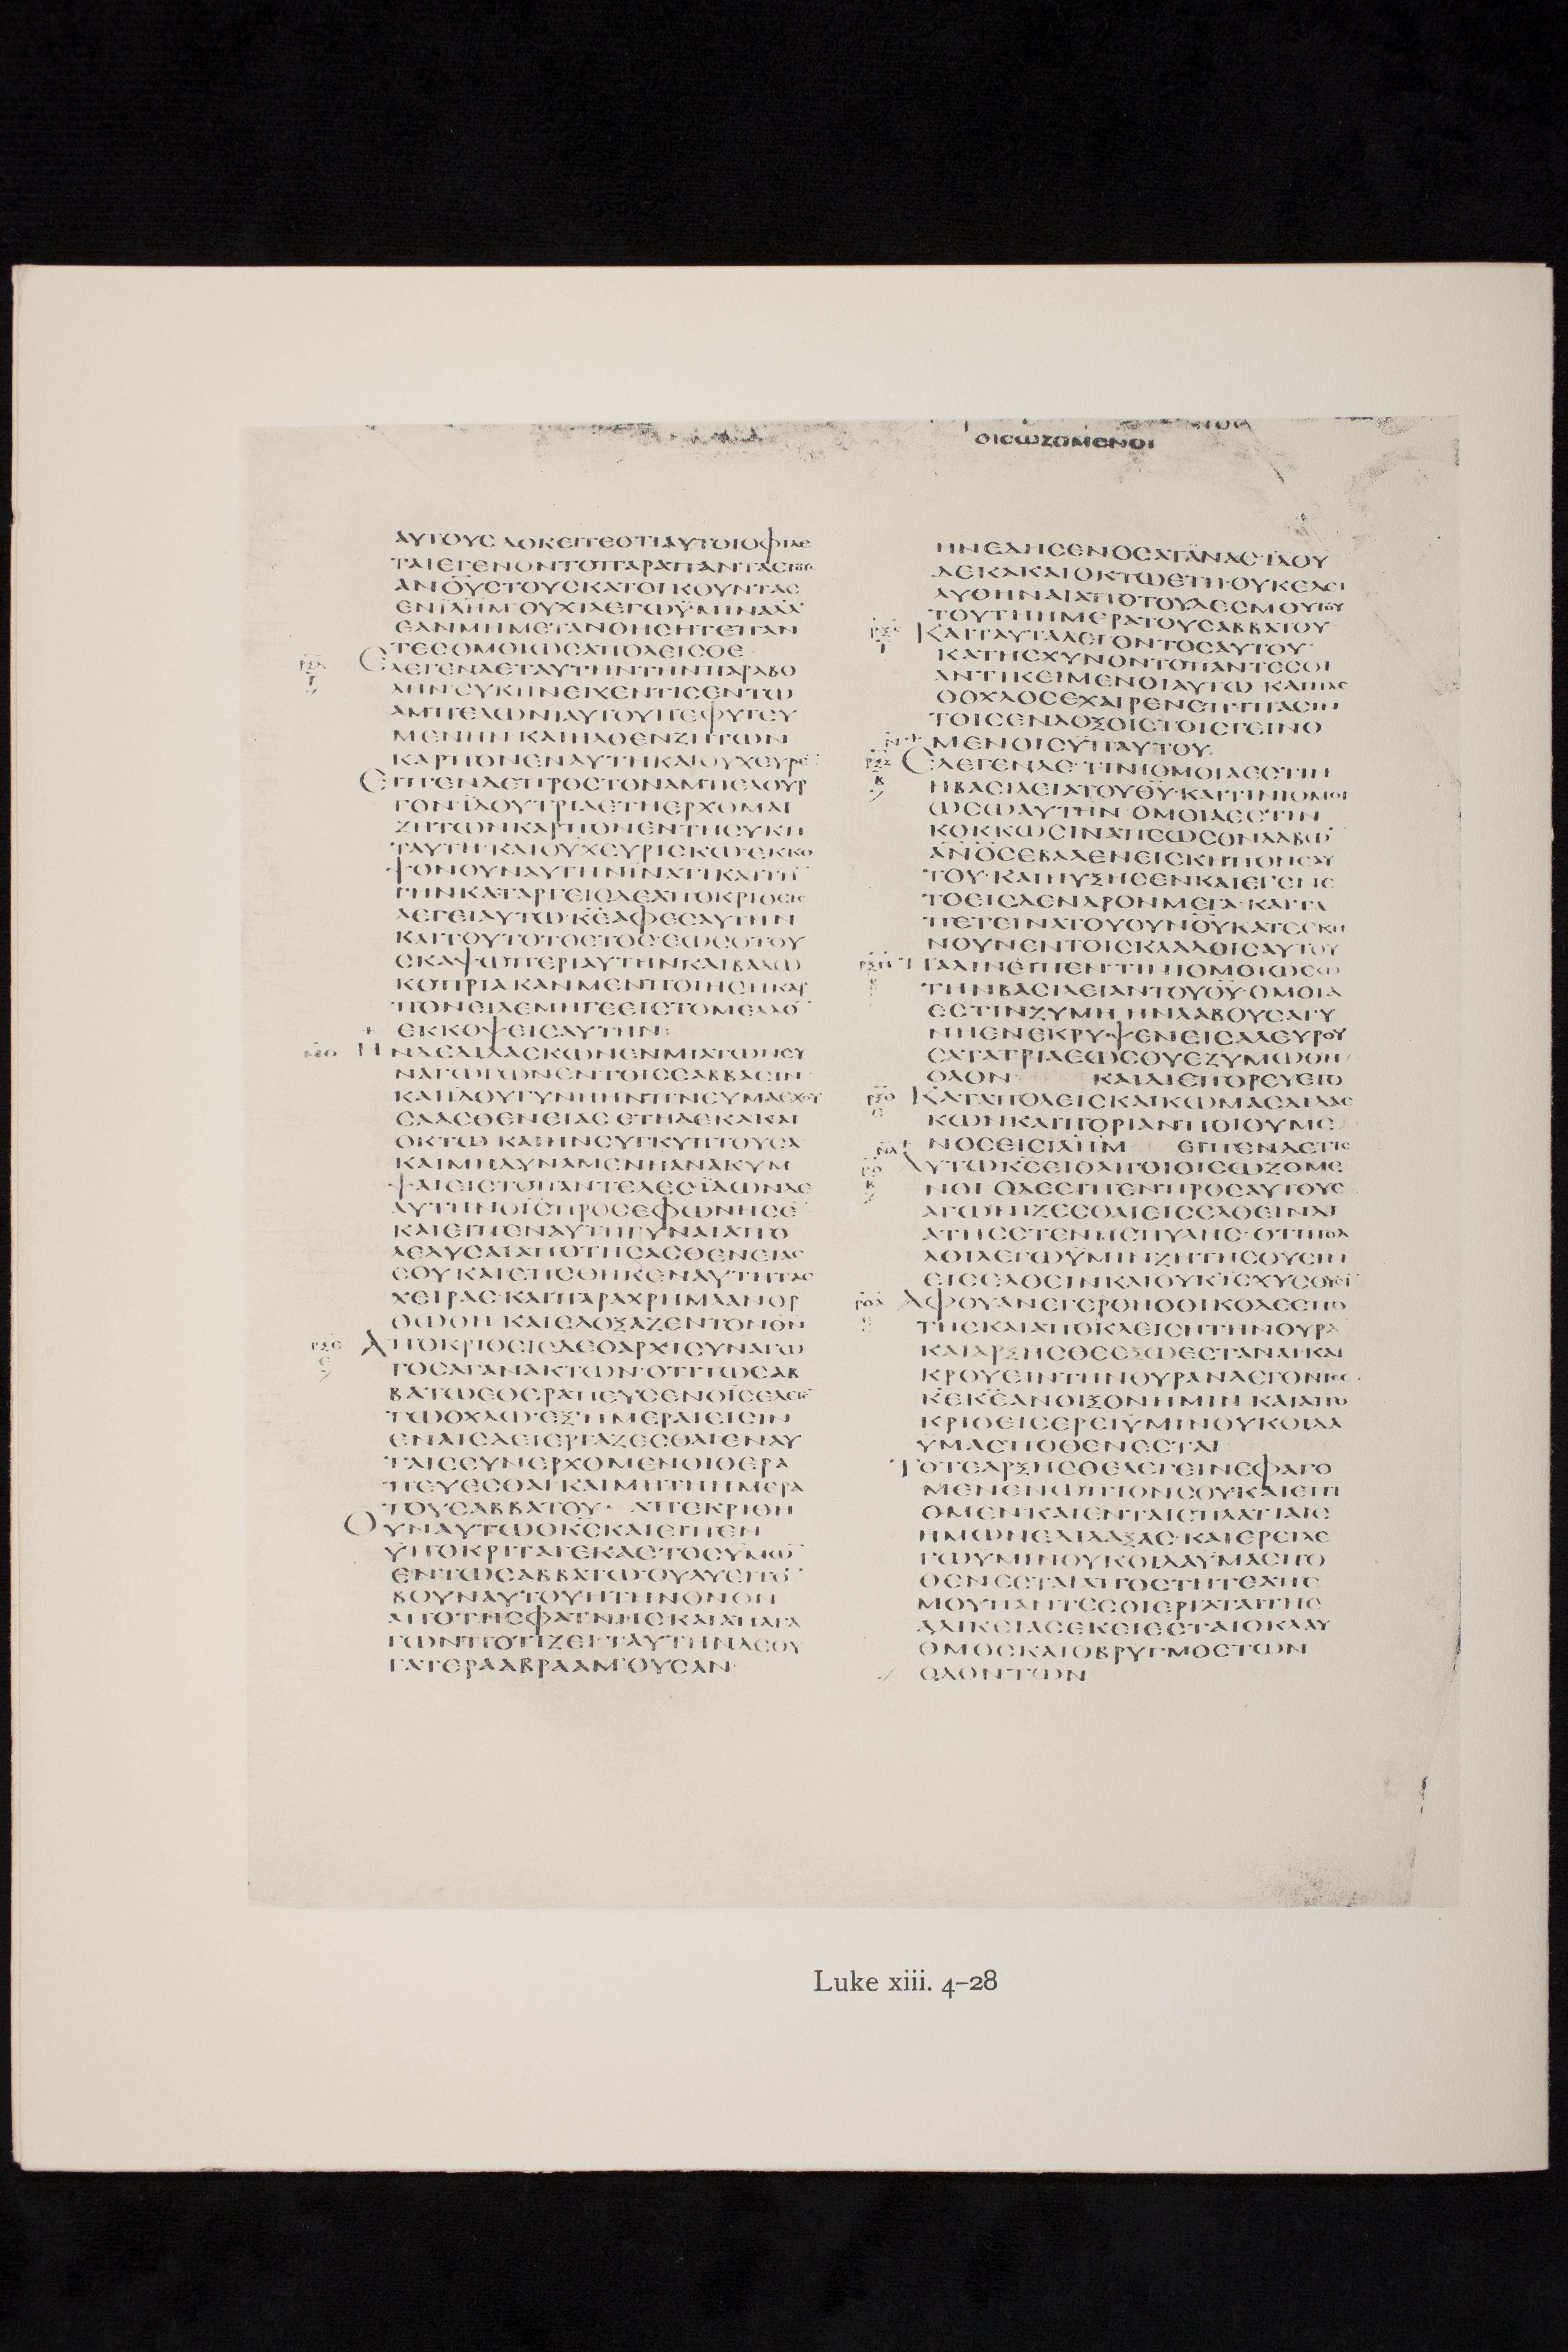 ΟΙΣΩΖΟΜΕΝΟΙ
ΑΥΤΟΥΣΔΟΚΕΙΤΕΟΤΙΑΥΤΟΙΟΦΙΛΕ
ΤΑΙΕΓΕΝΟΝΤΟΠΑΡΑΠΑΝΤΑΣΤΟΥΣ
ΑΝΟΥΣΤΟΥΣΚΑΤΟΙΚΟΥΝΤΑΣ
ΕΝΙΛΗΜ·ΟΥΧΙΛΕΓΩΫΜΙΝΑΛΛ
ΕΑΝΜΗΜΕΤΑΝΟΗΣΗΤΕΠΑΝ
ΤΕΣΟΜΟΙΩΣΑΠΟΛΕΙΣΘΕ
ΕΛΕΓΕΝΔΕΤΑΥΤΗΝΤΗΝΠΑΡΑΒΟ
ΛΗΝ·ΣΥΚΗΝΕΙΧΕΝΤΙΣΕΝΤΩ
ΑΜΠΕΛΩΝΙΑΥΤΟΥΠΕΦΥΤΕΥ
ΜΕΝΗΝ·ΚΑΙΗΛΘΕΝΖΗΤΩΝ
ΚΑΡΠΟΝΕΝΑΥΤΗΚΑΙΟΥΧΕΥΡΕ
ΕΙΠΕΝΔΕΠΡΟΣΤΟΝΑΜΠΕΛΟΥΡ
ΓΟΝ·ΪΔΟΥΤΡΙΑΕΤΗΕΡΧΟΜΑΙ
ΖΗΤΩΝΚΑΡΠΟΝΕΝΤΗΣΥΚΗ
ΤΑΥΤΗ·ΚΑΙΟΥΧΕΥΡΙΣΚΩ·ΕΚΚΟ
ΨΟΝΟΥΝΑΥΤΗΝΪΝΑΤΙΚΑΙΤΗ
ΓΗΝΚΑΤΑΡΓΕΙΟΔΕΑΠΟΚΡΙΘΕΙΣ
ΛΕΓΕΙΑΥΤΩ·ΚΕΑΦΕΣΑΥΤΗΝ
ΚΑΙΤΟΥΤΟΤΟΕΤΟΣ·ΕΩΣΟΤΟΥ
ΣΚΑΨΩΠΕΡΙΑΥΤΗΝΚΑΙΒΑΛΩ
ΚΟΠΡΙΑΚΑΝΜΕΝΠΟΙΗΣΗΚΑΡ
ΠΟΝΕΙΔΕΜΗΓΕΕΙΣΤΟΜΕΛΛΟ
ΕΚΚΟΨΕΙΣΑΥΤΗΝ:
ΗΝΔΕΔΙΔΑΣΚΩΝΕΝΜΙΑΤΩΝΣΥ
ΝΑΓΩΓΩΝΕΝΤΟΙΣΣΑΒΒΑΣΙΝ·
ΚΑΙΪΔΟΥΓΥΝΗΗΝΠΝΕΥΜΑΕΧΟΥ
ΣΑΑΣΘΕΝΕΙΑΣΕΤΗΔΕΚΑΚΑΙ
ΟΚΤΩ·ΚΑΙΗΝΣΥΓΚΥΠΤΟΥΣΑ
ΚΑΙΜΗΔΥΝΑΜΕΝΗΑΝΑΚΥΜ
ΨΑΙΕΙΣΤΟΠΑΝΤΕΛΕΣ·ΪΔΩΝΔΕ
ΑΥΤΗΝΟΙΣΠΡΟΣΕΦΩΝΗΣΕ
ΚΑΙΕΙΠΕΝΑΥΤΗΓΥΝΑΙΑΠΟ
ΛΕΛΥΣΑΙΑΠΟΤΗΣΑΣΘΕΝΕΙΑΣ
ΣΟΥ·ΚΑΙΕΠΕΘΗΚΕΝΑΥΤΗΤΑΣ
ΧΕΙΡΑΣ·ΚΑΙΠΑΡΑΧΡΗΜΑΑΝΟΡ
ΘΩΘΗΚΑΙΕΔΟΞΑΖΕΝΤΟΝΘΝ
ΑΠΟΚΡΙΘΕΙΣΔΕΟΑΡΧΙΣΥΝΑΓΩ
ΓΟΣΑΓΑΝΑΚΤΩΝ·ΟΤΙΤΩΣΑΒ
ΒΑΤΩΕΘΕΡΑΠΕΥΣΕΝΟΙΣΕΛΕΓΕ
ΤΩΟΧΛΩ·ΕΞΗΜΕΡΑΙΕΙΣΙΝ
ΕΝΑΙΣΔΕΙΕΡΓΑΖΕΣΘΑΙΕΝΑΥ
ΤΑΙΣΣΥΝΕΡΧΟΜΕΝΟΙΘΕΡΑ
ΠΕΥΕΣΘΑΙ·ΚΑΙΜΗΤΗΗΜΕΡΑ
ΤΟΥΣΑΒΒΑΤΟΥ· ΑΠΕΚΡΙΘΗ
ΟΥΝΑΥΤΩΟΚΣΚΑΙΕΙΠΕΝ
ΫΠΟΚΡΙΤΑΙ·ΕΚΑΣΤΟΣΥΜΩ
ΕΝΤΩΣΑΒΒΑΤΩ·ΟΥΛΥΕΙΤΟ
ΒΟΥΝΑΥΤΟΥΗΤΗΝΟΝΟΝ
ΑΠΟΤΗΣΦΑΤΝΗΣΚΑΙΑΠΑΓΑ
ΓΩΝΠΟΤΙΖΕΙ·ΤΑΥΤΗΝΔΕΘΥ
ΓΑΤΕΡΑΑΒΡΑΑΜΟΥΣΑΝ·
ΗΝΕΔΗΣΕΝΟΣΑΤΑΝΑΣΪΔΟΥ
ΔΕΚΑΚΑΙΟΚΤΩΕΤΗ·ΟΥΚΕΔΕΙ
ΛΥΘΗΝΑΙΑΠΟΤΟΥΔΕΣΜΟΥΤΟΥ
ΤΟΥΤΗΗΜΕΡΑΤΟΥΣΑΒΒΑΤΟΥ·
ΚΑΙΤΑΥΤΑΛΕΓΟΝΤΟΣΑΥΤΟΥ·
ΚΑΤΗΣΧΥΝΟΝΤΟΠΑΝΤΕΣΟΙ
ΑΝΤΙΚΕΙΜΕΝΟΙΑΥΤΩ·ΚΑΙΠΑΣ
ΟΟΧΛΟΣΕΧΑΙΡΕΝΕΠΙΠΑΣΙΝ
ΤΟΙΣΕΝΔΟΞΟΙΣΤΟΙΣΓΕΙΝΟ
ΜΕΝΟΙΣΫΠΑΥΤΟΥ·
ΕΛΕΓΕΝΔΕ·ΤΙΝΙΟΜΟΙΑΕΣΤΙΝ
ΗΒΑΣΙΛΕΙΑΤΟΥΘΥ·ΚΑΙΤΙΝΙΟΜΟΙ
ΩΣΩΑΥΤΗΝ·ΟΜΟΙΑΕΣΤΙΝ
ΚΟΚΚΩΣΙΝΑΠΕΩΣΟΝΛΑΒΩ
ΑΝΟΣΕΒΑΛΕΝΕΙΣΚΗΠΟΝΕΑΥ
ΤΟΥ·ΚΑΙΗΥΞΗΣΕΝΚΑΙΕΓΕΝΕ
ΤΟΕΙΣΔΕΝΔΡΟΝΜΕΓΑ·ΚΑΙΤΑ
ΠΕΤΕΙΝΑΤΟΥΟΥΝΟΥΚΑΤΕΣΚΗ
ΝΟΥΝΕΝΤΟΙΣΚΛΑΔΟΙΣΑΥΤΟΥ
ΠΑΛΙΝΕΙΠΕΝ·ΤΙΝΙΟΜΟΙΩΣΩ
ΤΗΝΒΑΣΙΛΕΙΑΝΤΟΥΘΥ·ΟΜΟΙΑ
ΕΣΤΙΝΖΥΜΗΗΝΛΑΒΟΥΣΑΓΥ
ΝΗΕΝΕΚΡΥΨΕΝΕΙΣΑΛΕΥΡΟΥ
ΣΑΤΑΤΡΙΑΕΩΣΟΥΕΖΥΜΩΘΗ
ΟΛΟΝ· ΚΑΙΔΙΕΠΟΡΕΥΕΤΟ
ΚΑΤΑΠΟΛΕΙΣΚΑΙΚΩΜΑΣΔΙΔΑΣ
ΚΩΝΚΑΙΠΟΡΙΑΝΠΟΙΟΥΜΕ
ΝΟΣΕΙΣΙΛΗΜ ΕΙΠΕΝΔΕΤΙΣ
ΑΥΤΩΚΕΕΙΟΛΙΓΟΙΟΙΣΩΖΟΜΕ
ΝΟΙ·ΟΔΕΕΙΠΕΝΠΡΟΣΑΥΤΟΥΣ
ΑΓΩΝΙΖΕΣΘΑΙΕΙΣΕΛΘΕΙΝΔΙ
ΑΤΗΣΣΤΕΝΗΣΠΥΛΗΣ·ΟΤΙΠΟΛ
ΛΟΙΛΕΓΩΫΜΙΝΖΗΤΗΣΟΥΣΙΝ
ΕΙΣΕΛΘΕΙΝΚΑΙΟΥΚΙΣΧΥΣΟΥΣΙ
ΑΦΟΥΑΝΕΓΕΡΘΗΟΟΙΚΟΔΕΣΠΟ
ΤΗΣΚΑΙΑΠΟΚΛΕΙΣΗΤΗΝΘΥΡΑ
ΚΑΙΑΡΞΗΣΘΕΕΞΩΕΣΤΑΝΑΙΚΑΙ
ΚΡΟΥΕΙΝΤΗΝΘΥΡΑΝΛΕΓΟΝΤΕΣ·
ΚΕΚΕΑΝΟΙΞΟΝΗΜΙΝΚΑΙΑΠΟ
ΚΡΙΘΕΙΣΕΡΕΙΫΜΙΝΟΥΚΟΙΔΑ
ΫΜΑΣΠΟΘΕΝΕΣΤΑΙ
ΤΟΤΕΑΡΞΗΣΘΕΛΕΓΕΙΝΕΦΑΓΟ
ΜΕΝΕΝΩΠΙΟΝΣΟΥΚΑΙΕΠΙ
ΟΜΕΝ·ΚΑΙΕΝΤΑΙΣΠΛΑΤΙΑΙΣ
ΗΜΩΝΕΔΙΔΑΞΑΣ·ΚΑΙΕΡΕΙΛΕ
ΓΩΫΜΙΝΟΥΚΟΙΔΑΫΜΑΣΠΟ
ΘΕΝΕΣΤΑΙΑΠΟΣΤΗΤΕΑΠΕ
ΜΟΥΠΑΝΤΕΣΟΙΕΡΓΑΤΑΙΤΗΣ
ΑΔΙΚΕΙΑΣΕΚΕΙΕΣΤΑΙΟΚΛΑΥ
ΘΜΟΣΚΑΙΟΒΡΥΓΜΟΣΤΩΝ
ΟΔΟΝΤΩΝ
Luke xiii. 4–28